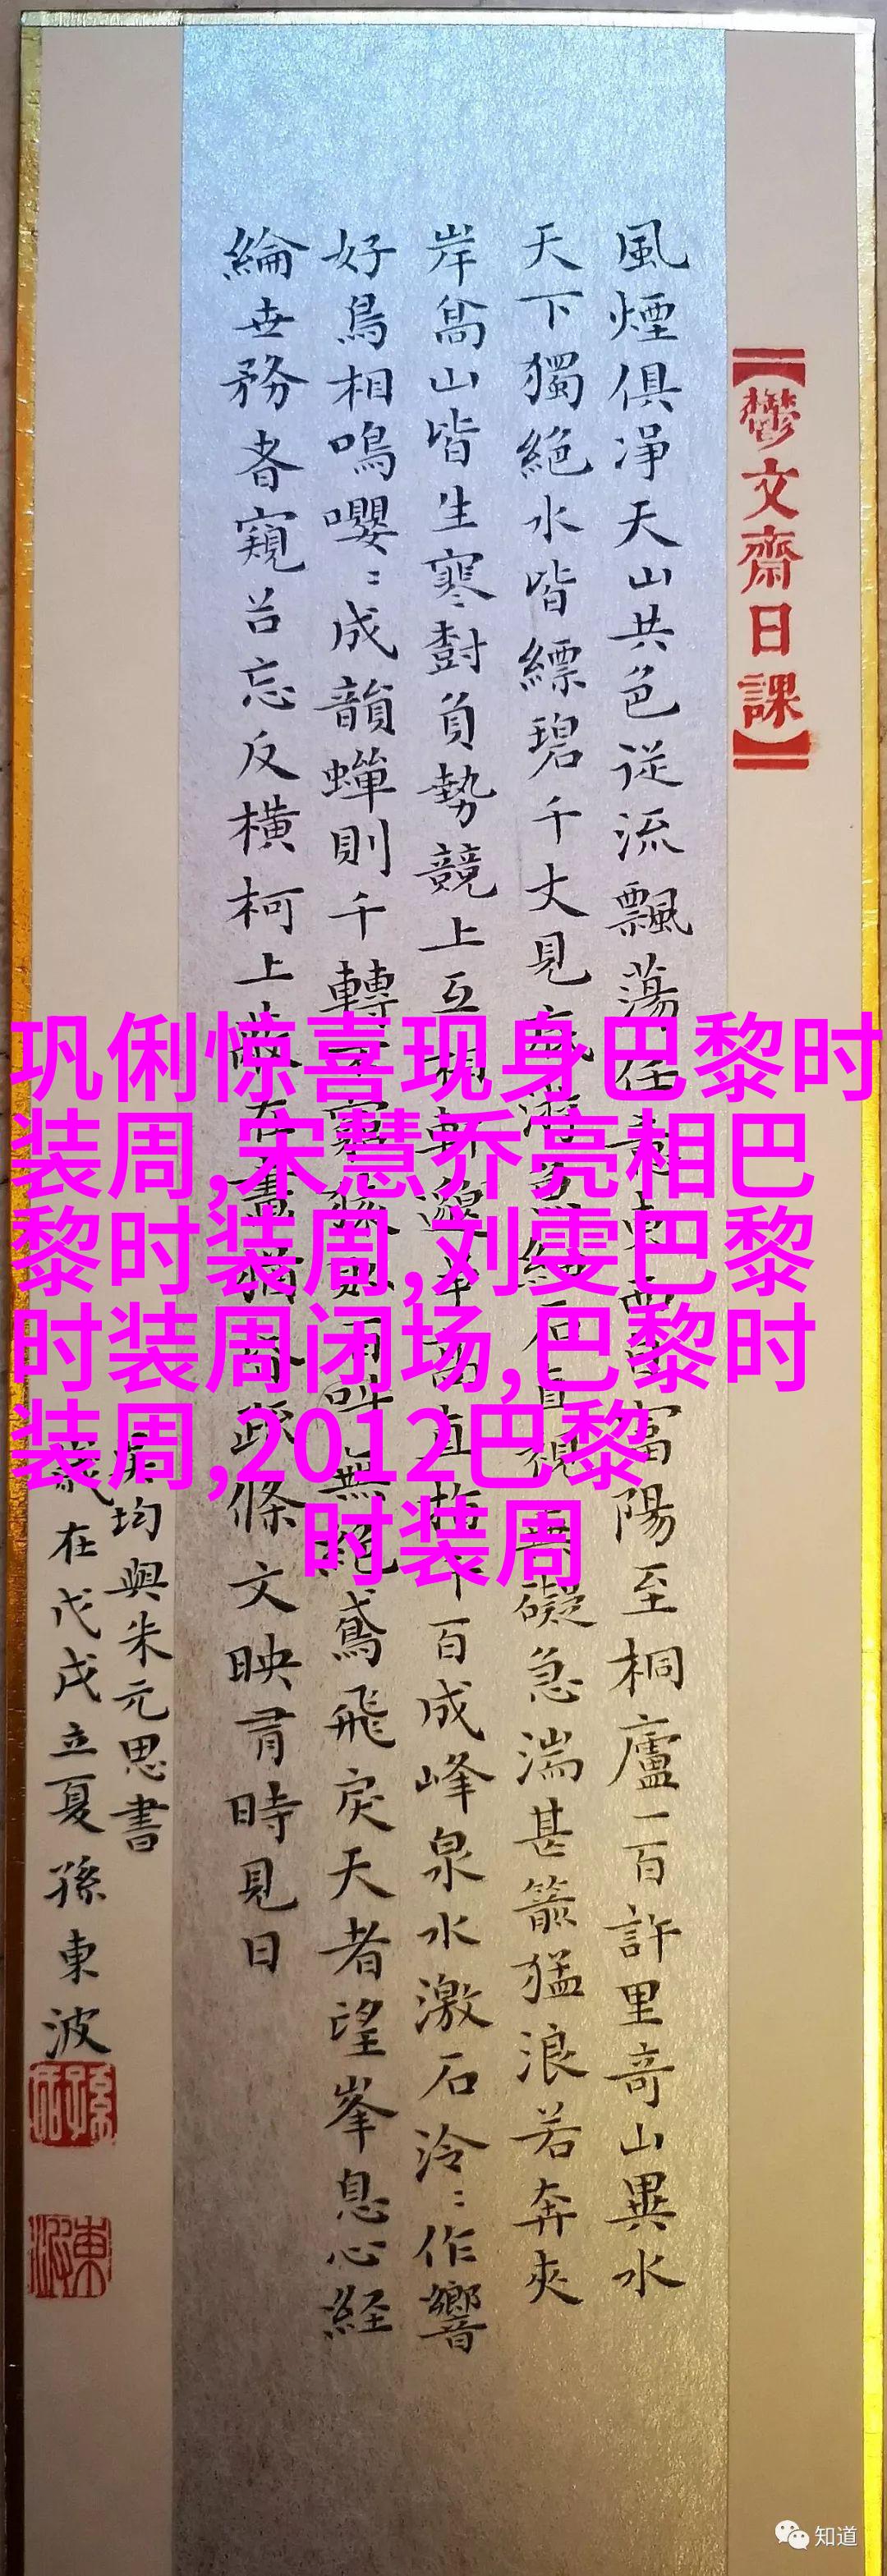 【鬱文齋日課】
風煙俱淨天山共色從流飄蕩任意東西自富陽至桐廬一百許里奇山異水
天下獨絕水皆縹碧千丈見底游魚細石直視無礙急湍甚箭猛浪若奔夾
岸高山皆生寒樹負勢競上互相軒邈爭高直指千百成峰泉水激石泠﹕作響
好鳥相鳴嚶﹕成韻蟬則千轉不窮猿則百叫無絕鳶飛戾天者望峯息心経
綸世務者窺谷忘反橫柯上蔽在晝猶昏疏條交映有時見日
吳均與朱元思書
歲在戊戌立夏孫東波
巩俐惊喜现身巴黎时
装周,宋慧乔亮相巴
黎时装周,刘雯巴黎
时装周闭场,巴黎时
装周,2012巴黎
时装周
知道